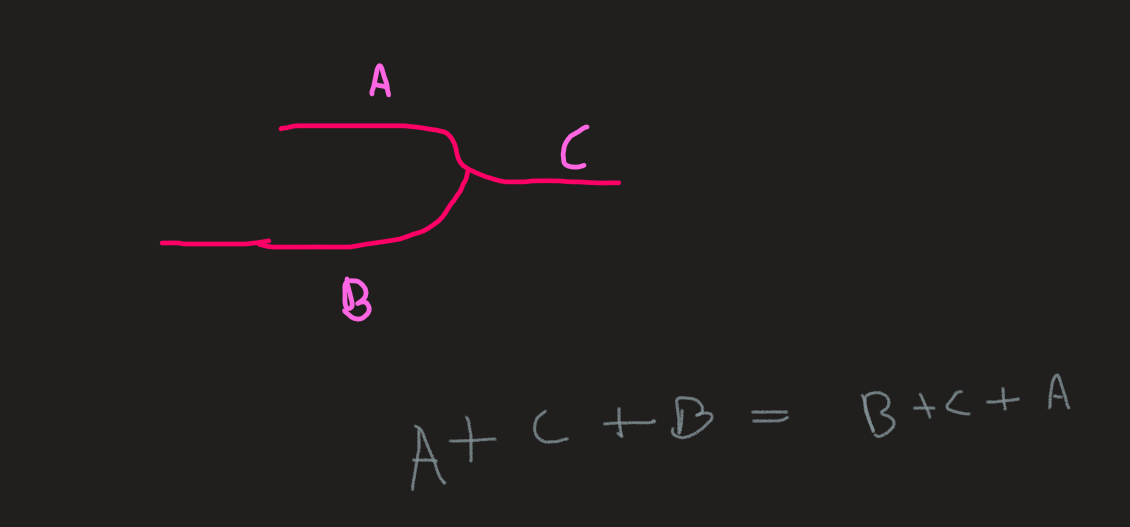 A
C
B
A + C + B = B + C + A